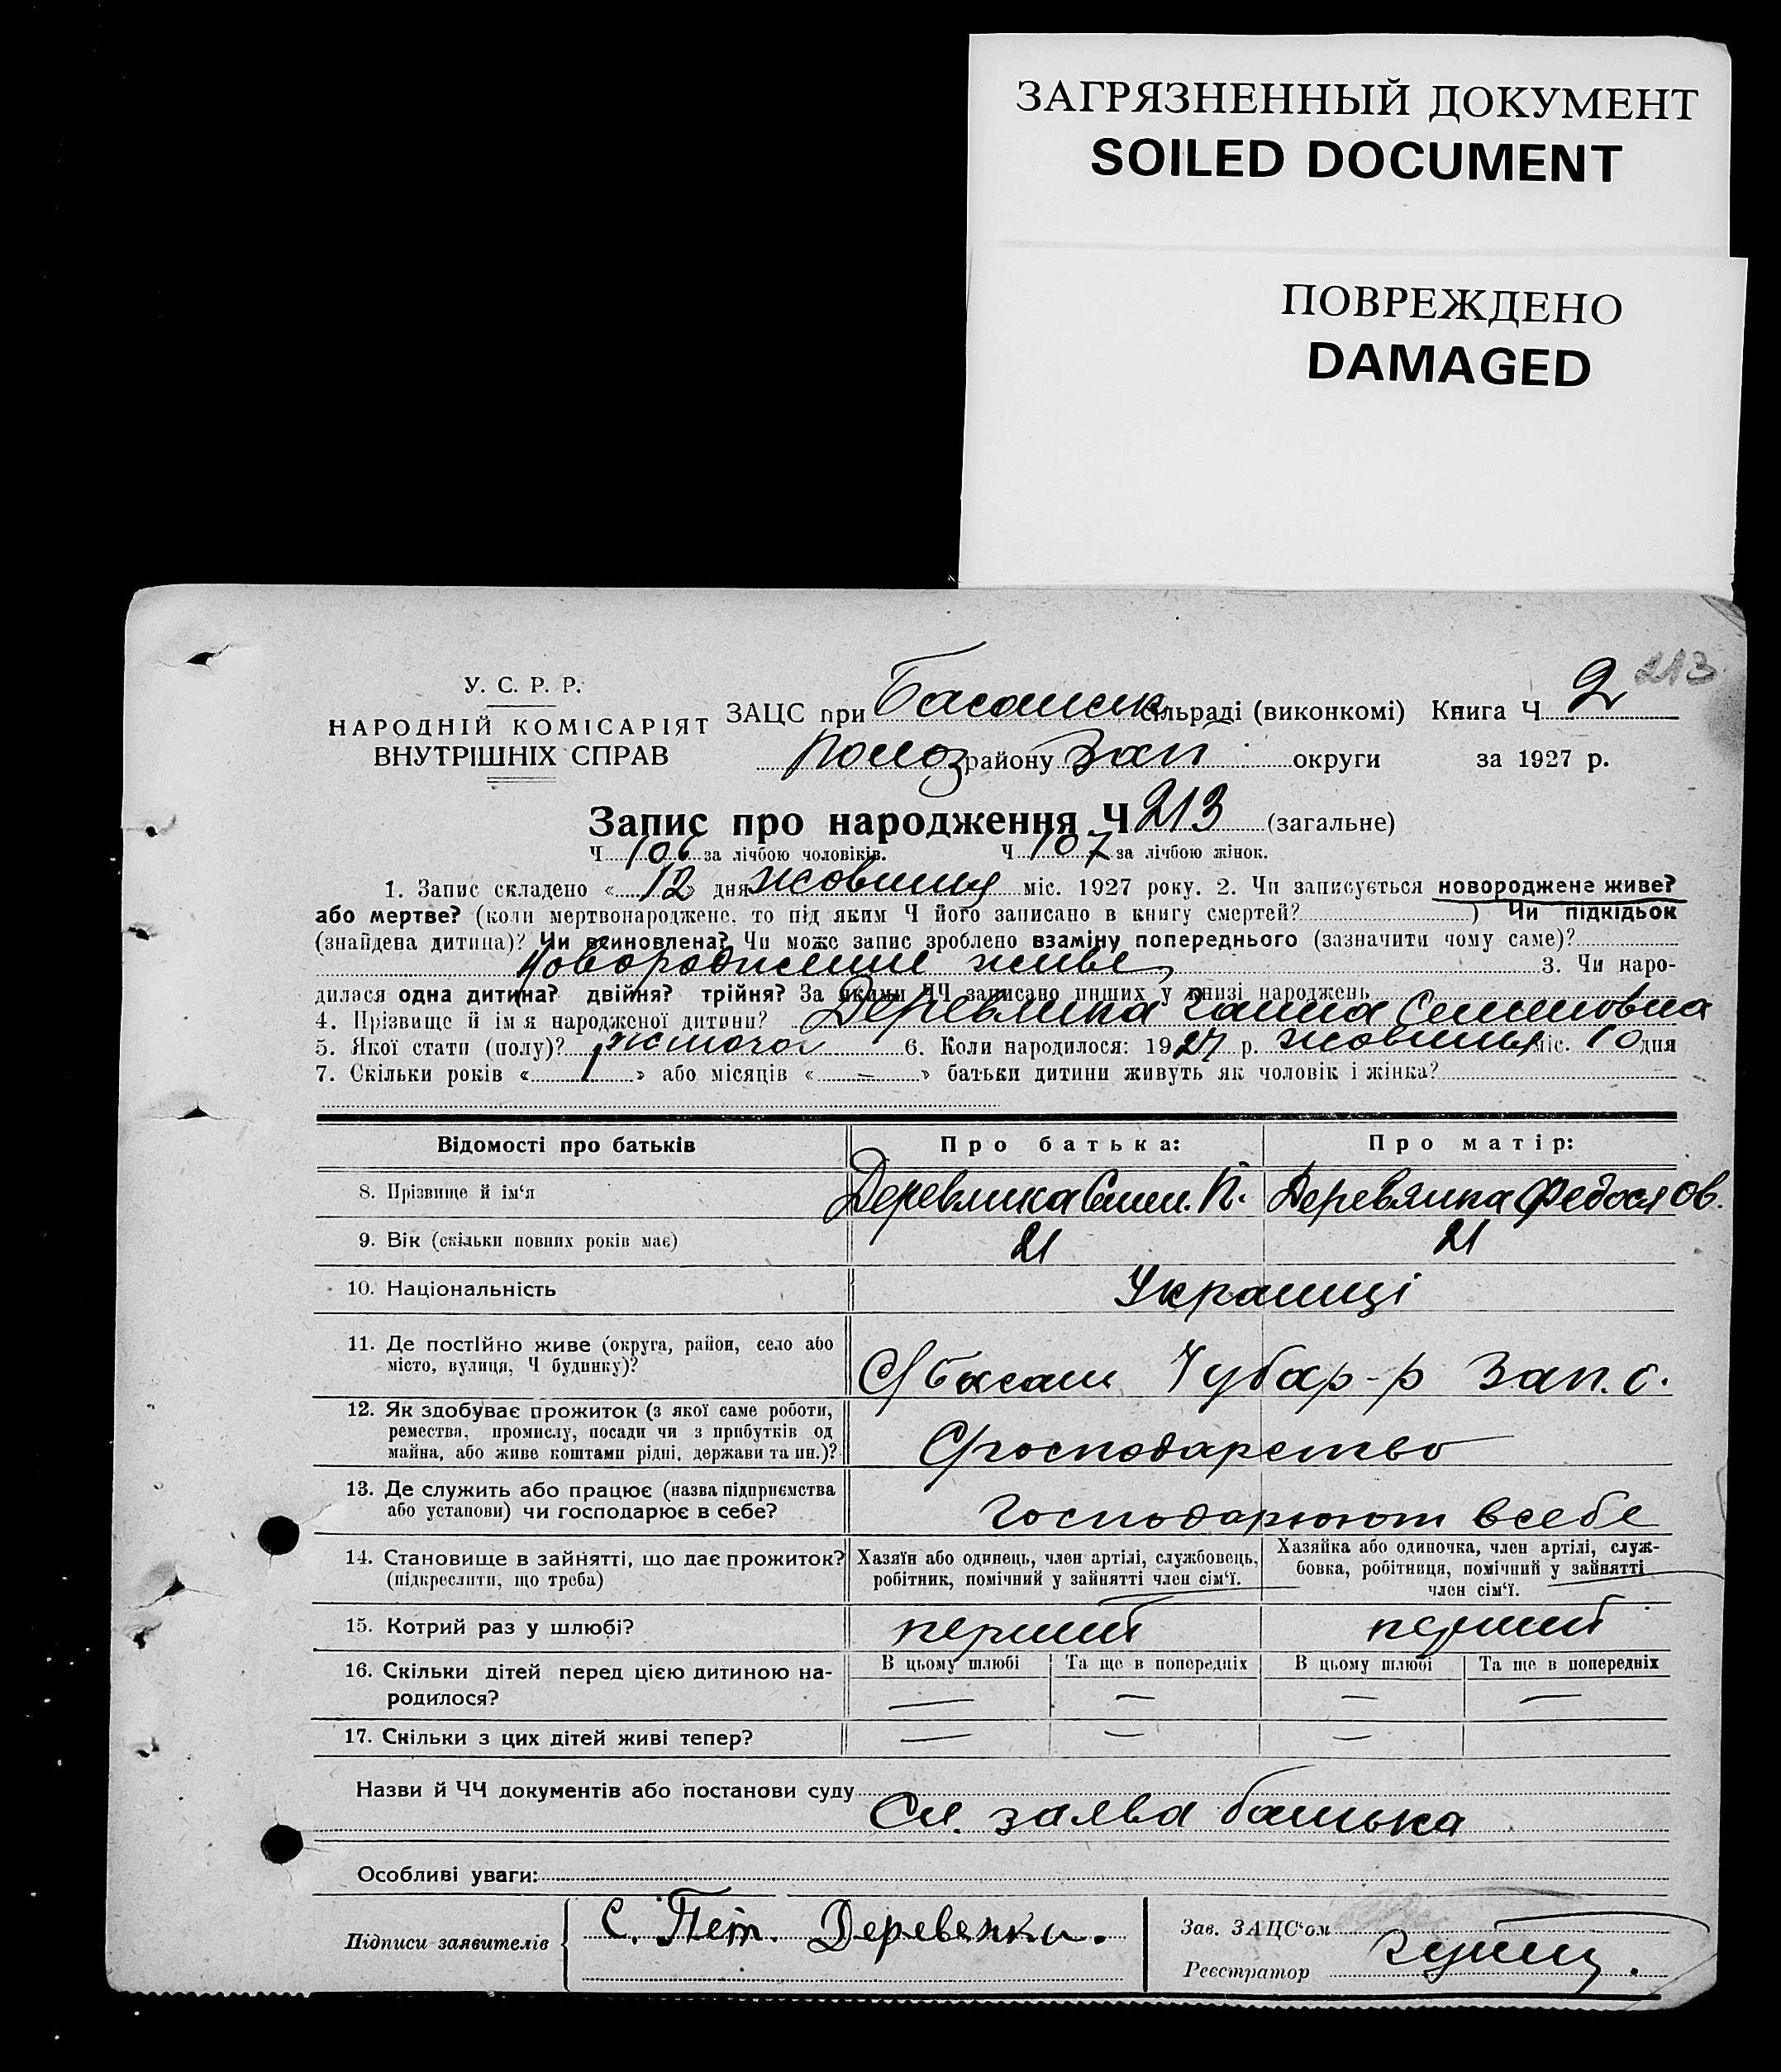 ЗАГРЯЗНЕННЫЙ ДОКУМЕНТ
SOILED DOCUMENT
ПОВРЕЖДЕНО
DAMAGED
213
У. С. Р. Р.
НАРОДНІЙ КОМІСАРІЯТ
ВНУТРІШНІХ СПРАВ
ЗАЦС при Басанськ сільраді (виконкомі) Книга Ч 2
Полог району Зап округи за 1927 р.
Запис про народження Ч 213 (загальне)
Ч 106 за лічбою чоловіків. Ч 107 за лічбою жінок.
1. Запис складено « 12 » дня жовтня міс. 1927 року. 2. Чи записується новороджене живе?
або мертве? (коли мертвонароджене, то під яким Ч його записано в книгу смертей? ) Чи підкідьок
(знайдена дитина)? Чи всиновлена? Чи може запис зроблено взаміну попереднього (зазначити чому саме)?
новороджене живе 3. Чи наро-
дилася одна дитина? двійня? трійня? За якими ЧЧ записано инших у книзі народжень
4. Прізвище й ім'я народженої дитини? Деревянка Ганна Семеновна
5. Якої стати (полу)? жіночої 6. Коли народилося: 1927 р. жовтня міс. 10 дня
7. Скільки років « 1 » або місяців « — » батьки дитини живуть як чоловік і жінка?
Відомості про батьків Про батька: Про матір:
8. Прізвище й ім'я Деревянка Семен. П. Деревянка Федося Ов.
9. Вік (скільки повних років має) 21 21
10. Національність Українці
11. Де постійно живе (округа, район, село або
місто, вулиця, Ч будинку)? С/Басань Чубар-р Зап. о.
12. Як здобуває прожиток (з якої саме роботи,
ремества, промислу, посади чи з прибутків од
майна, або живе коштами рідні, держави та ин.)? С/господарство
13. Де служить або працює (назва підприємства
або установи) чи господарює в себе? Господарюют всебе
14. Становище в зайнятті, що дає прожиток? Хазяїн або одинець, член артілі, службовець, Хазяйка або одиночка, член артілі, служ-
(підкреслити, що треба) робітник, помічний у зайнятті член сім'ї. бовка, робітниця, помічний у зайнятті
член сім'ї.
15. Котрий раз у шлюбі? перший перший
16. Скільки дітей перед цією дитиною на- В цьому шлюбі Та ще в попередніх В цьому шлюбі Та ще в попередніх
родилося? — — — —
17. Скільки з цих дітей живі тепер? — — —
Назви й ЧЧ документів або постанови суду
Сл. заява батька
Особливі уваги:
Підписи заявителів С. Пет. Деревенки.
Зав. ЗАЦС'ом
Реєстратор